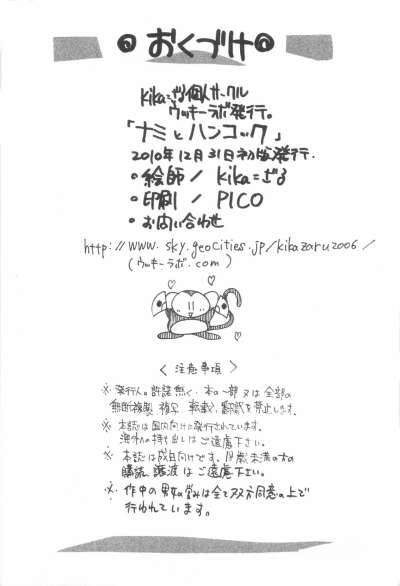 おくづけ
Kika=ざる個人サークル
ウッキーラボ発行。
「ナミとハンコック」
2010年12月31日初版発行.
・絵師 / Kika=ざる
・印刷 / PICO
・お問い合わせ
http://www.sky.geocities.jp/kikazaru2006/
(ウッキーラボ.com)
〈注意事項〉
※発行人の許諾無く、本の一部又は全部の
無断複製、複写、転載、翻訳を禁止します。
※本誌は国内向けに発行されています。
海外への持ち出しはご遠慮下さい。
※本誌は成人向けです。18歳未満の方の
購読、譲渡はご遠慮下さい。
※作中の男女の営みは全て双方同意の上で
行われています。